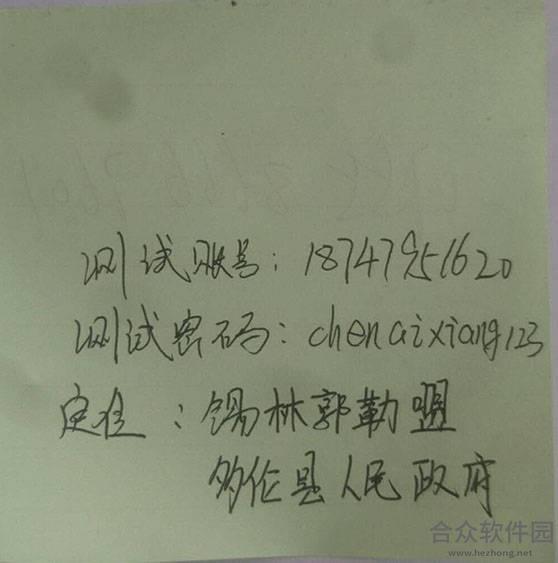 测试账号：18747951620
测试密码：chenaixiang123
定位：锡林郭勒盟
多伦县人民政府
合众软件园
www.hezhong.net